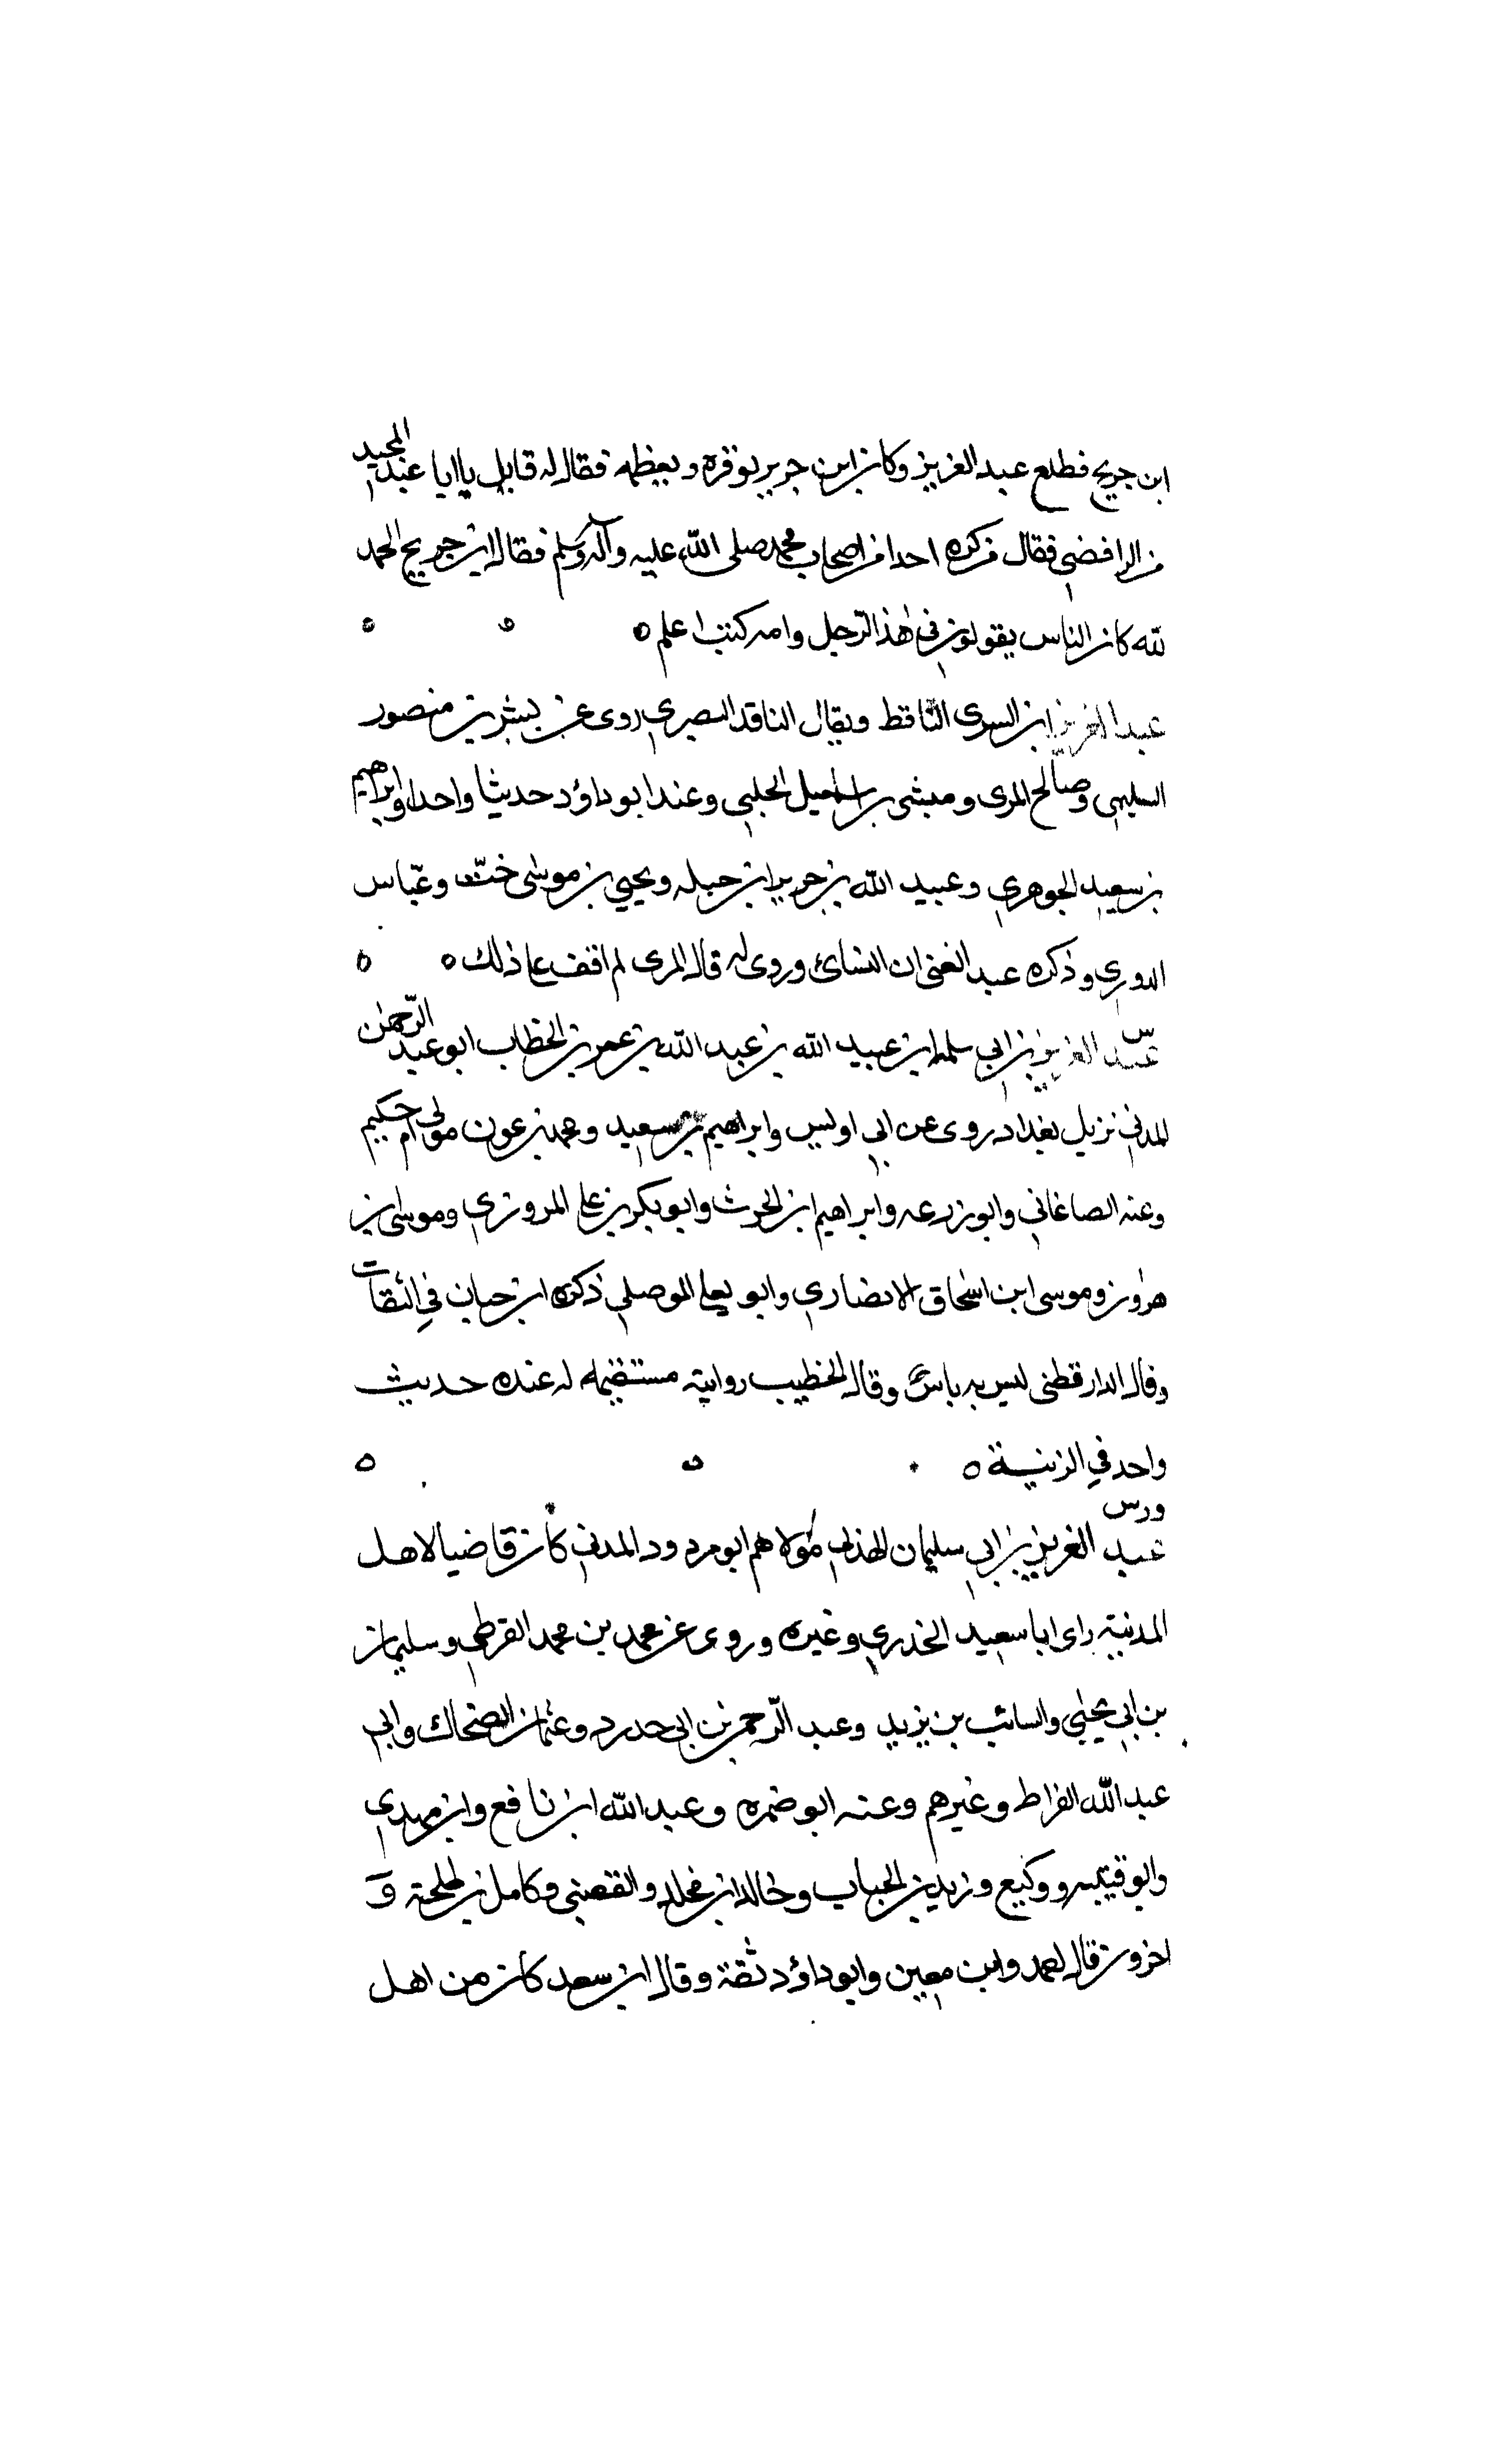 ابن جريج فطلع عبد العزيز وكان ابن جرير يوقره ويعظمه فقال له قايل يا ابا عبد المجيد
من الرافضي فقال من كره احدا من اصحاب محمد صلى الله عليه وآله وسلم فقال ابن جريج الحمد
لله كان الناس يقولون في هٰذا الرجل وامه كنت اعلم ه
عبد العزيز ابن السري الناقط ويقال الناقد البصري روى عن بشر بن منصور
السليمي وصالح المري ومبشر بن اسماعيل الحلبي وعند ابو داؤد حديثا واحدا وابراهيم
بن سعيد الجوهري وعبيد الله بن جرير ابن جبله ويحيي بن موسى خت وعباس
الدوري وذكره عبد الغني ان النسائ وروى له قال المزى لم اقف على ذلك ه
س
عبد العزيز بن ابي سلمه ابن عبيد الله بن عبد الله بن عمر بن الخطاب ابو عبد الرحمٰن
المدني نزيل بغداد روى عن ابي اوليس وابراهيم بن سعيد ومحمد بن عون مولى ام حكيم
وعنه الصاغاني وابو زرعه وابراهيم ابن الحرث وابو بكر بن علي المروزي وموسى بن
هرون وموسى ابن اسحاق الانصاري وابو يعلي الموصلي ذكره ابن حبان في الثقات
وقال الدارقطنى ليس به باس وقال الخطيب روايته مستقيمه له عنده حديث
واحد في الزينة ه
ورس
عبد العزيز بن ابي سليمان الهذلي مولاهم ابو مردود المدني كان قاضيا لاهل
المدنية راى ابا سعيد الخدري وغيره وروى عن محمد بن محمد القرطي وسليمان
بن ابي يحيي والسائب بن يزيد وعبد الرحمن بن ابي حدرد وعثمان الضحاك وابي
عبد الله القراط وغيرهم وعنه ابو ضمره وعبد الله ابن نافع وابن مهدي
وابو قتيبه ووكيع وزيد بن الحباب وخالد ابن مخلد والقعنبي وكامل بن طلحة و
اخرون قال احمد وابن معين وابو داؤد ثقة وقال ابن سعد كان من اهل